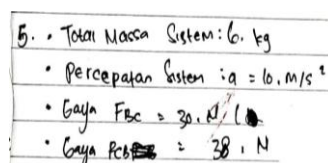 5. • Total Massa Sistem : 6. kg
• Percepatan Sistem : a = 10. m/s²
• Gaya FBC = 30. N
• Gaya FCB = 38. N